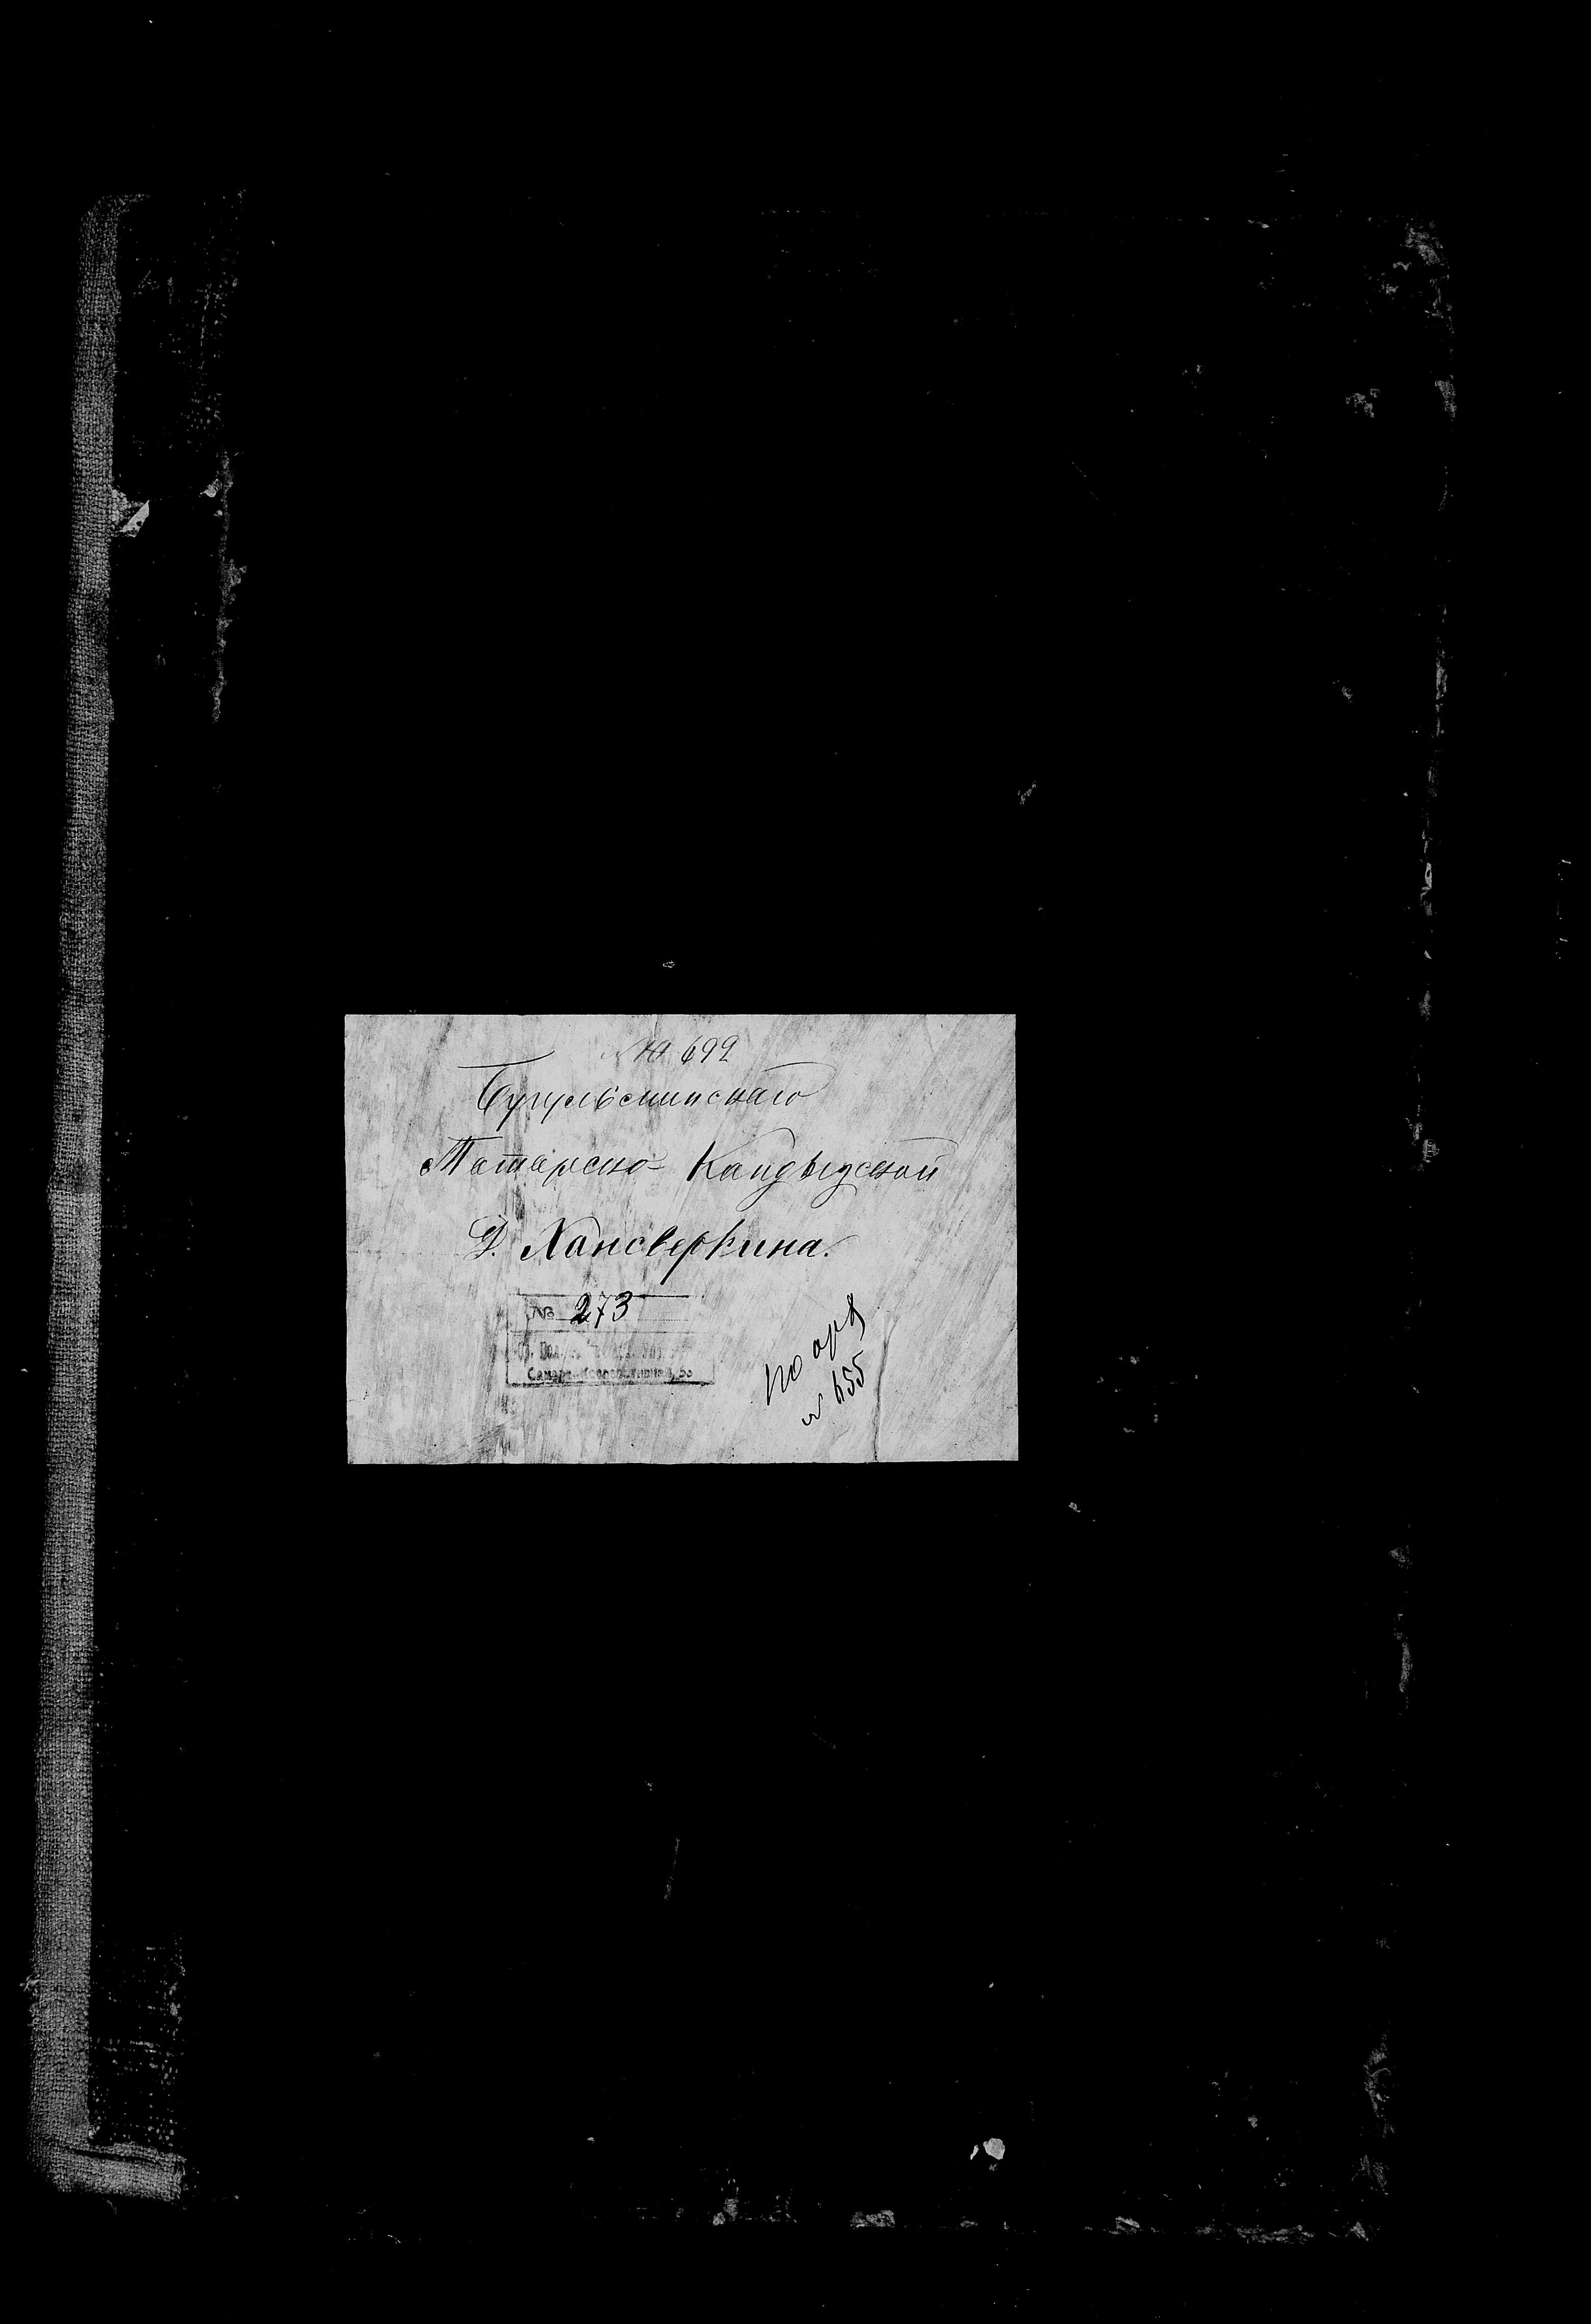 № 692
Бугульминскаго
Татарско-Кандызской
Д. Хансверкина.
№ 273
по оря
№ 655